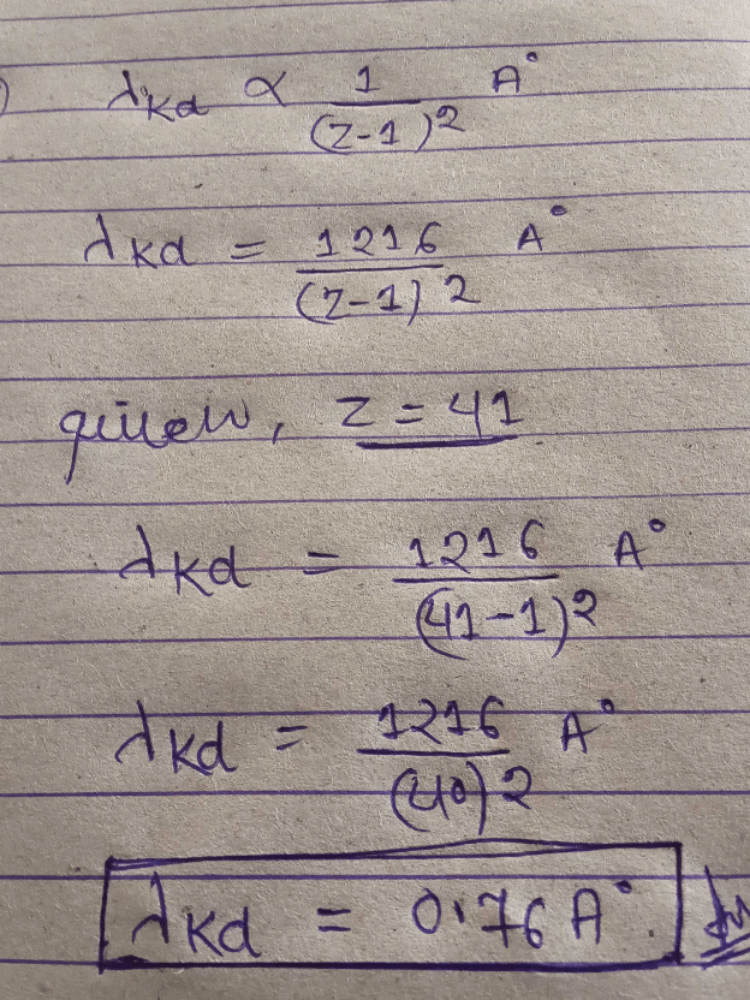 λKα ∝ 1/(Z-1)² A°
λKα = 1216/(Z-1)² A°
given, Z = 41
λKα = 1216/(41-1)² A°
λKα = 1216/(40)² A°
λKα = 0.76 A°